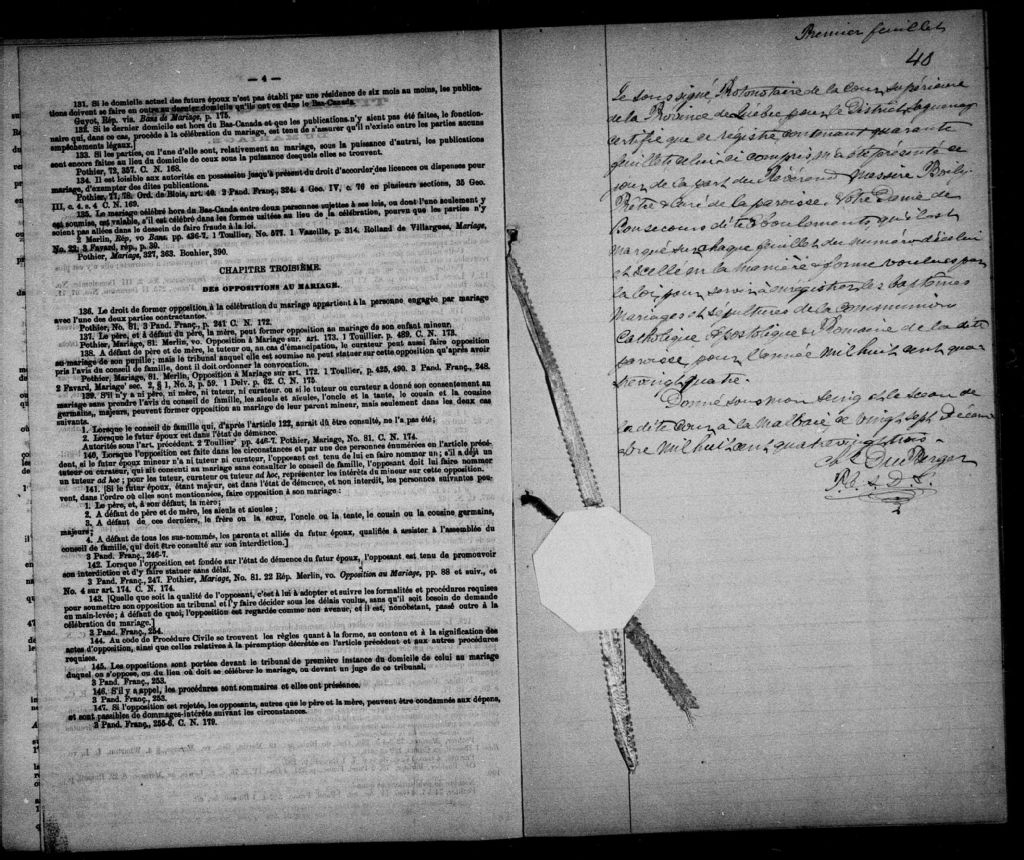 — 4 —
131. Si le domicile actuel des futurs époux n'est pas établi par une résidence de six mois au moins, les publica-
tions doivent se faire en outre au dernier domicile qu'ils ont eu dans le Bas-Canada.
Guyot, Rép. vis. Bans de Mariage, p. 175.
132. Si le dernier domicile est hors du Bas-Canada et que les publications n'y aient pas été faites, le fonction-
naire qui, dans ce cas, procède à la célébration du mariage, est tenu de s'assurer qu'il n'existe entre les parties aucuns
empêchements légaux.]
133. Si les parties, ou l'une d'elle sont, relativement au mariage, sous la puissance d'autrui, les publications
sont encore faites au lieu du domicile de ceux sous la puissance desquels elles se trouvent.
Pothier, 72, 357. C. N. 168.
134. Il est loisible aux autorités en possession jusqu'à présent du droit d'accorder des licences ou dispenses pour
mariage, d'exempter des dites publications.
Pothier, 77, 78. Ord. de Blois, art. 40. 2 Pand. Franç., 324. 4 Geo. IV, c. 76 en plusieurs sections, 35 Geo.
III, c. 4. s. 4 C. N. 169.
135. Le mariage célébré hors du Bas-Canada entre deux personnes sujettes à ses lois, ou dont l'une seulement y
est soumise, est valable, s'il est célébré dans les formes usitées au lieu de la célébration, pourvu que les parties n'y
soient pas allées dans le dessein de faire fraude à la loi.
2 Merlin, Rép, vo Bans, pp. 436-7. 1 Toullier, No. 577. 1 Vazeille, p. 314. Rolland de Villargues, Mariage,
No. 22; 3 Favard, rép., p. 30.
Pothier, Mariage, 327, 363. Bouhier, 390.
CHAPITRE TROISIÈME.
DES OPPOSITIONS AU MARIAGE.
136. Le droit de former opposition à la célébration du mariage appartient à la personne engagée par mariage
avec l'une des deux parties contractantes.
Pothier, No. 81, 3 Pand. Franç., p. 241 C. N. 172.
137. Le père, et à défaut du père, la mère, peut former opposition au mariage de son enfant mineur.
Pothier, Mariage, 81. Merlin, vo. Opposition à Mariage sur. art. 173. 1 Toullier. p. 489. C. N. 173.
138. A défaut de père et de mère, le tuteur ou, au cas d'émancipation, le curateur peut aussi faire opposition
au mariage de son pupille; mais le tribunal auquel elle est soumise ne peut statuer sur cette opposition qu'après avoir
pris l'avis du conseil de famille, dont il doit ordonner la convocation.
Pothier, Mariage, 81. Merlin, vo Opposition à Mariage sur art. 172. 1 Toullier, p. 425, 490. 3 Pand. Franç., 248.
2 Favard, Mariage sec. 2, § 1, No. 3, p. 59. 1 Delv. p. 62. C. N. 175
139. S'il n'y a ni père, ni mère, ni tuteur, ni curateur, ou si le tuteur ou curateur a donné son consentement au
mariage sans prendre l'avis du conseil de famille, les aïeuls et aïeules, l'oncle et la tante, le cousin et la cousine
germains, majeurs, peuvent former opposition au mariage de leur parent mineur, mais seulement dans les deux cas
suivants.
1. Lorsque le conseil de famille qui, d'après l'article 122, aurait dû être consulté, ne l'a pas été;
2. Lorsque le futur époux est dans l'état de démence.
Autorités sous l'art. précédent. 2 Toullier' pp. 446-7. Pothier, Mariage, No. 81. C. N. 174.
140. Lorsque l'opposition est faite dans les circonstances et par une des personnes énoncées en l'article précé-
dent, si le futur époux mineur n'a ni tuteur ni curateur, l'opposant est tenu de lui en faire nommer un; s'il a déjà un
tuteur ou curateur, qui ait consenti au mariage sans consulter le conseil de famille, l'opposant doit lui faire nommer
un tuteur ad hoc; pour les tuteur, curateur ou tuteur ad hoc, représenter les intérêts du mineur sur cette opposition.
141. [Si le futur époux, étant majeur, est dans l'état de démence, et non interdit, les personnes suivantes peu-
vent, dans l'ordre où elles sont mentionnées, faire opposition à son mariage:
1. Le père, et, à son défaut, la mère;
2. A défaut de père et de mère, les aïeuls et aïeules;
3. A défaut de ces derniers, le frère ou la sœur, l'oncle ou la tante, le cousin ou la cousine germains,
majeurs;
4. A défaut de tous les sus-nommés, les parents et alliés du futur époux, qualifiés à assister à l'assemblée du
conseil de famille, qui doit être consulté sur son interdiction.]
3 Pand. Franç., 246-7.
142. Lorsque l'opposition est fondée sur l'état de démence du futur époux, l'opposant est tenu de promouvoir
son interdiction et d'y faire statuer sans délai.
3 Pand. Franç., 247. Pothier, Mariage, No. 81. 22 Rép. Merlin, vo. Opposition au Mariage, pp. 88 et suiv., et
No. 4 sur art. 174. C. N. 174.
143. [Quelle que soit la qualité de l'opposant, c'est à lui à adopter et suivre les formalités et procédures requises
pour soumettre son opposition au tribunal et l'y faire décider sous les délais voulus, sans qu'il soit besoin de demande
en main-levée; à défaut de quoi, l'opposition est regardée comme non avenue, et il est, nonobstant, passé outre à la
célébration du mariage.]
3 Pand. Franç., 254.
144. Au code de Procédure Civile se trouvent les règles quant à la forme, au contenu et à la signification des
actes d'opposition, ainsi que celles relatives à la péremption décrétée en l'article précédent et aux autres procédures
requises.
145. Les oppositions sont portées devant le tribunal de première instance du domicile de celui au mariage
duquel on s'oppose, ou du lieu où doit se célébrer le mariage, ou devant un juge de ce tribunal.
3 Pand. Franç., 253.
146. S'il y a appel, les procédures sont sommaires et elles ont préséance.
3 Pand. Franç., 253.
147. Si l'opposition est rejetée, les opposants, autres que le père et la mère, peuvent être condamnés aux dépens,
et sont passibles de dommages-intérêts suivant les circonstances.
3 Pand. Franç., 255-6. C. N. 179.
Premier feuillet
40
Le soussigné, Protonotaire de la Cour Supérieure
de la Province de Québec, pour le District Saguenay
certifie que ce registre contenant quarante
feuillets celui-ci compris, m'a été présenté ce
jour de la part du Révérend Messire
Prêtre & Curé de la paroisse Notre Dame de
Bonsecours dite Eboulements, qu'il est
marqué sur chaque feuillet du numéro d'icelui
et scellé en la manière & forme voulues par
la loi, pour servir à enregistrer les baptêmes
Mariages et sépultures de la Communion
Catholique Apostolique & Romaine de la dite
paroisse, pour l'année mil huit cent qua-
trevingt quatre.
Donné sous mon seing et le sceau de
la dite Cour, à la Malbaie le vingt sept Décem-
bre mil huit cent quatrevingt trois.
Chs Du Berger
P. C. S. D. S.